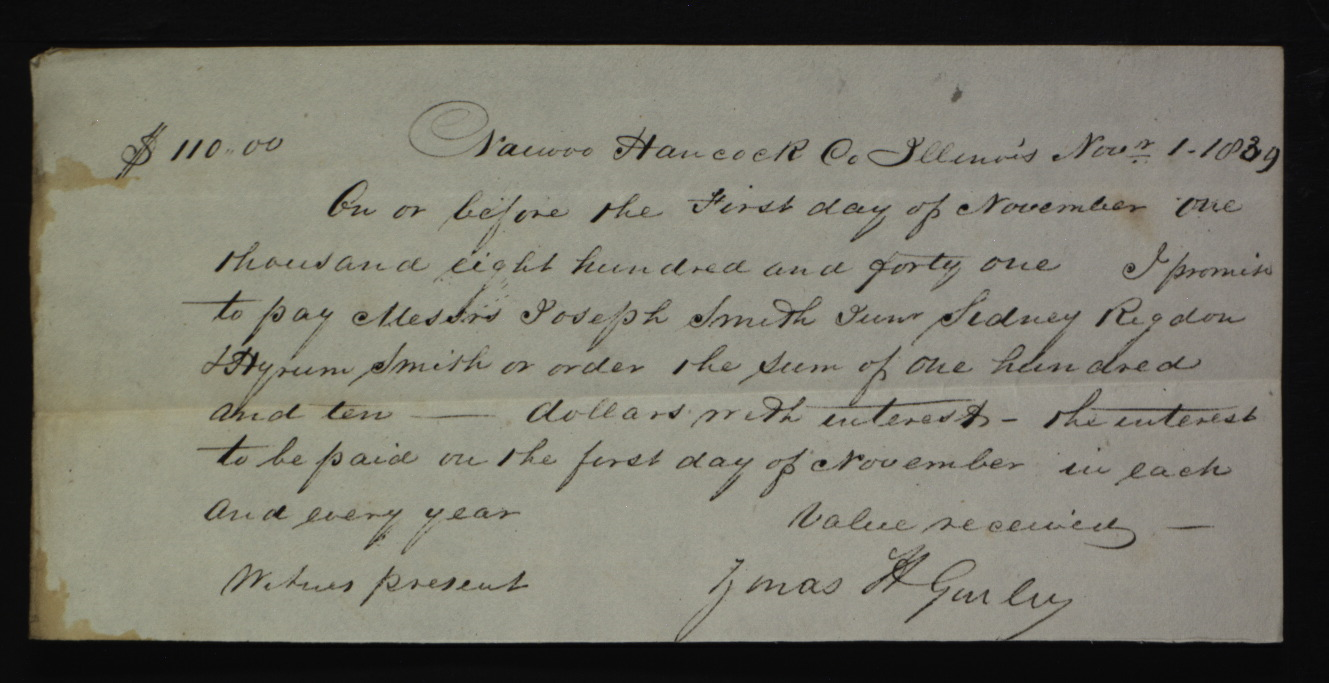 $110.00 Nauvoo Hancock Co Illinois Novr 1 - 1839
On or before the First day of November one
thousand eight hundred and forty one I promise
to pay Messrs Joseph Smith Junr Sidney Rigdon
& Hyrum Smith or order the sum of one hundred
and ten — dollars with interest - the interest
to be paid on the first day of November in each
and every year Value received —
Witness present Zonas H Gurley